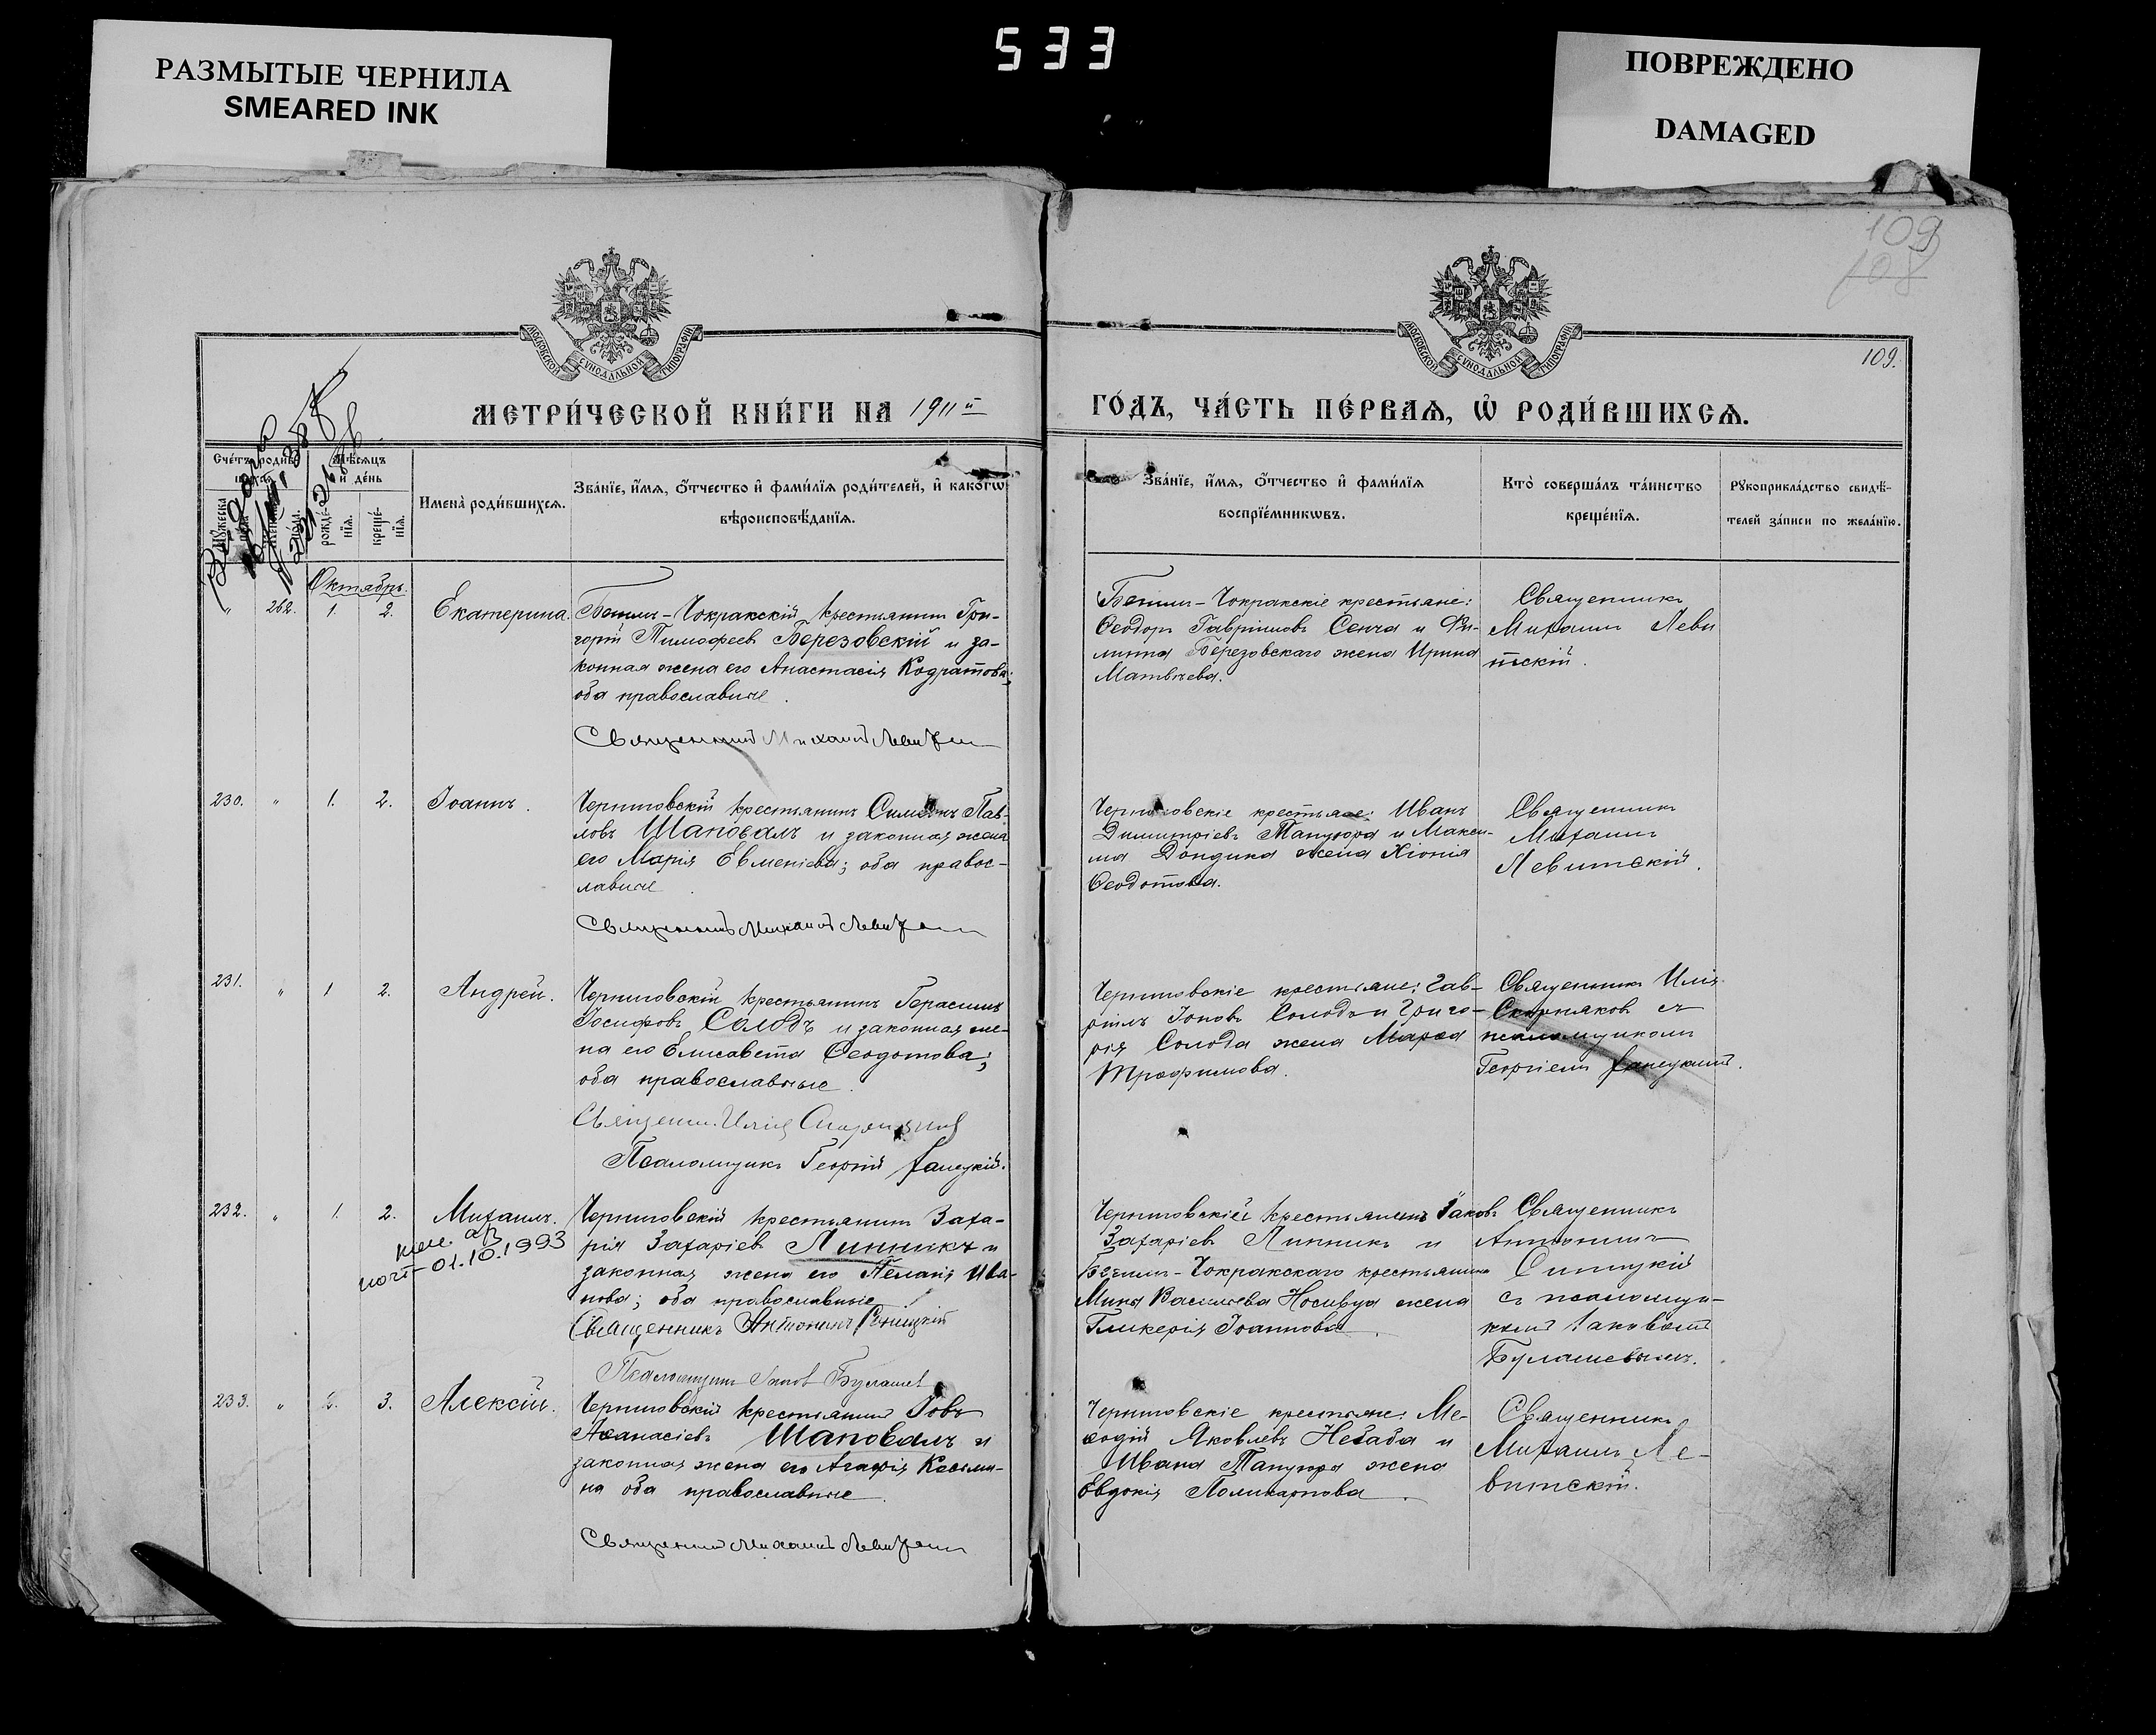 РАЗМЫТЫЕ ЧЕРНИЛА
SMEARED INK
533
ПОВРЕЖДЕНО
DAMAGED
109
108
МОСКОВСКОЙ СѴНОДАЛЬНОЙ ТИПОГРАФІИ
МОСКОВСКОЙ СѴНОДАЛЬНОЙ ТИПОГРАФІИ
109.
МЕТРИ́ЧЕСКОЙ КНИ́ГИ НА 1911й
ГО́ДЪ, ЧА́СТЬ ПЕ́РВАѦ, Ѡ҆ РОДИ́ВШИХСѦ.
Мѣ́сѧцъ
и҆ де́нь
рожде́-
нїѧ.
креще́-
нїѧ.
И҆мена̀ роди́вшихсѧ.
Зва́нїе, и҆́мѧ, ѻ҆́тчество и҆ фами́лїѧ роди́телей, и҆ како́гѡ
вѣроисповѣ́данїѧ.
Зва́нїе, и҆́мѧ, ѻ҆́тчество и҆ фами́лїѧ
воспрїе́мникѡвъ.
Кто̀ соверша́лъ та́инство
креще́нїѧ.
Рꙋкоприкла́дство свидѣ́-
телей за́писи по жела́нїю.
Октябрь.
" 262. 1. 2. Екатерина.
Бешли-Чокракскій крестьянинъ Гри-
горій Тимофеевъ Березовскій и за-
конная жена его Анастасія Кодратова;
оба православные.
Священникъ Михаилъ Левитскій
Бешли-Чокракскіе крестьяне:
Ѳеодоръ Гавріиловъ Сенча и Фи-
липпа Березовскаго жена Ирина
Матвѣева.
Священникъ
Михаилъ Леви
тскій.
230. " 1. 2. Іоаннъ.
Черниговскій крестьянинъ Симеонъ Пав-
ловъ Шаповалъ и законная жена
его Марія Евменіева; оба правос-
лавные
Священникъ Михаилъ Левитскій
Черниговскіе крестьяне: Иванъ
Димитріевъ Танцюра и Макси-
ма Дондика жена Хіонія
Ѳеодотова.
Священникъ
Михаилъ
Левитскій.
231. " 1 2. Андрей.
Черниговскій крестьянинъ Герасимъ
Іосифовъ Солодъ и законная же-
на его Елисавета Ѳеодотова;
оба православные.
Священ. Илія
Псаломщикъ Георгій
Черниговскіе крестьяне: Гав-
ріилъ Іоновъ Солодъ и Григо-
рія Солода жена Марѳа
Трофимова.
Священникъ Илія
съ
псаломщикомъ
Георгіемъ
232. " 1. 2. Михаилъ.
01.10.1993
Черниговскій крестьянинъ Заха-
рія Захаріевъ Линникъ и
законная жена его Пелагія Ива-
нова; оба православные
Священникъ Антонинъ Синицкій
Псаломщикъ Іаковъ Булашевъ
Черниговскій крестьянинъ Іаковъ
Захаріевъ Линникъ и
Бешли-Чокракскаго крестьянина
Мины Васильева Носивца жена
Гликерія Іоаннова.
Священникъ
Антонинъ
Синицкій
съ псаломщи-
комъ Іаковомъ
Булашевымъ.
233. " 2. 3. Алексій.
Черниговскій крестьянинъ Іовъ
Аѳанасіевъ Шаповалъ и
законная жена его Агафія Косьми-
на оба православные.
Священникъ Михаилъ Левитскій
Черниговскіе крестьяне: Ме-
ѳодій Яковлевъ Небаба и
Ивана Танцюра жена
Евдокія Поликарпова.
Священникъ
Михаилъ Ле-
витскій.